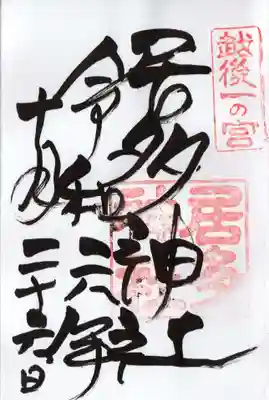 越後一の宮
居多神社
令和六年
十月二十六日
居多神社